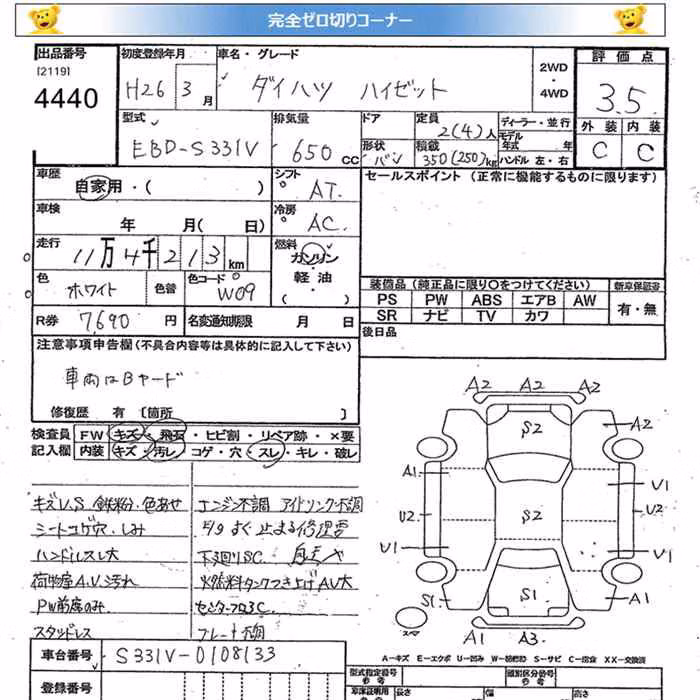 完全ゼロ切りコーナー
出品番号
[2119]
4440
初度登録年月
H26 3月
車名・グレード
ダイハツ ハイゼット
2WD
・
4WD
評価点
3.5
外装 内装
C C
型式
EBD-S331V
排気量
650cc
ドア
形状
バン
定員
2(4)人
積載
350(250)kg
ディーラー・並行
モデル
年式 年
ハンドル 左・右
車歴
自家用・( )
シフト
AT
セールスポイント (正常に機能するものに限ります)
車検
年 月( 日)
冷房
AC
走行
11万4千213km
燃料
ガソリン
軽油
( )
色
ホワイト
色替
色コード
W09
装備品(純正品に限り○をつけてください)
新車保証書
PS PW ABS エアB AW
SR ナビ TV カワ
有・無
R券
7,690円
名変通知期限 月 日
後日品
注意事項申告欄(不具合内容等は具体的に記入して下さい)
車両はBヤード
修復歴 有 [箇所 ]
検査員
記入欄
FW キズ・飛石・ヒビ割・リペア跡・×要
内装 キズ・汚レ・コゲ・穴・スレ・キレ・破レ
キズU.S 鉄粉・色あせ
シートコゲ穴・しみ
ハンドルスレ大
荷物室A.U汚れ
PW前席のみ
スタッドレス
エンジン不調 アイドリング不調
すぐ止まる修理要
下廻りSC
燃料タンクつき上げAU大
A2 A2 A2
S2
A2
A1
U1
U2
S2
U2
U1
U1
S1
S1
A1
スマ
A1 A3
車台番号
S331V-0108133
登録番号
A-キズ E-エクボ U-凹み S-サビ C-腐食 XX-交換済
型式指定番号
参考
類別区分番号
参考
車庫証明用
長さ
幅
高さ